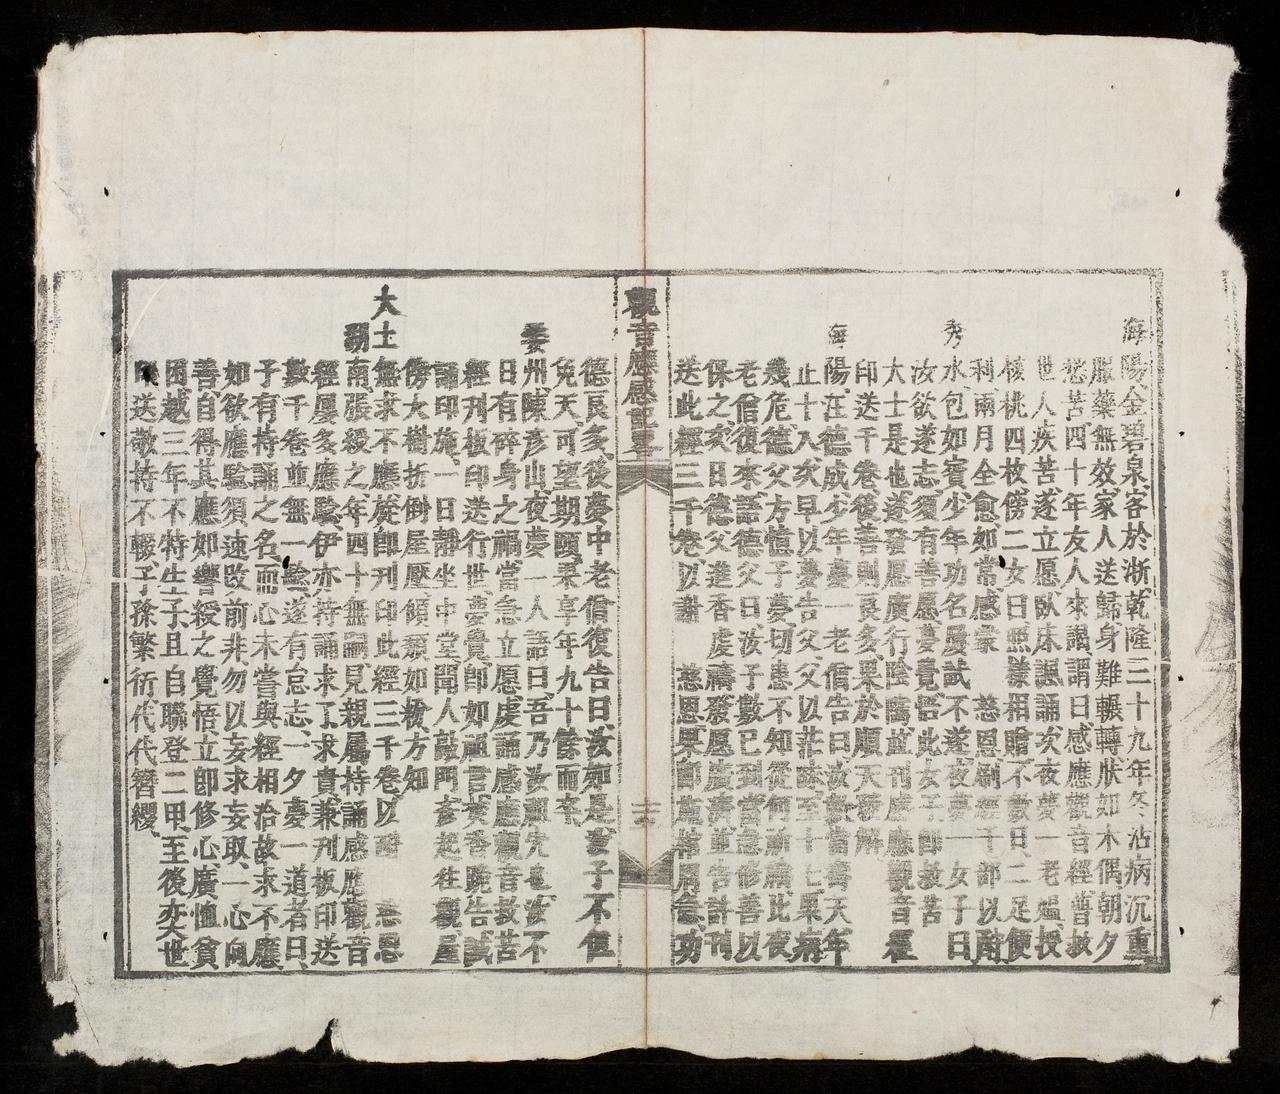 海陽金碧泉客於浙乾隆三十九年冬沾病沉重
服藥無效家人送歸身難輾轉狀如木偶朝夕
愁苦四十年友人來謁謂曰感應觀音經普救
世人疾苦遂立愿臥床諷誦次夜夢一老媪授
核桃四枚傍二女曰照樣相贈不數日二足便
利兩月全愈如常感蒙 慈恩刷經千部以酧
秀水包如賓少年功名屢試不遂夜夢一女子曰
汝欲遂志須有善愿夢覺悟此女子即救苦
大士是也遂發愿廣行陰隲並刊應驗觀音經
印送千卷後善則良多果於順天發解
海陽在德成少年夢一老僧告曰汝數當壽天年
止十八矣早以夢告父父以茫昧至十七果病
幾危德父方憶子夢切患不知從何祈禱此夜
老僧復來語德父曰汝子數已到當急修善以
保之次日德父進香虔禱發愿廣濟並告許刊
送此經三千卷以謝 慈恩果即萬帶厨愈功
觀音應感記畧
德良多後夢中老僧復告曰汝如是妻子不但
免天可望期頤果享年九十餘而卒
婺州陳彦山夜夢一人語曰吾乃汝祖先也汝不
日有碎身之禍當急立愿虔誦感應觀音救苦
經刊板印送行世夢覺即如祖言焚香跪告誠
誦印施一日靜坐中堂聞人敲門彦起往觀屋
傍大樹折倒屋壓傾頹如橫方知
大士無求不應旋即刊印此經三千卷以酧 慈恩
湖南張綬之年四十無嗣見親屬持誦感應觀音
經屢多應驗伊亦持誦求了求貴兼刊板印送
數千卷並無一驗遂有怠志一夕夢一道者曰
子有持誦之名而心未嘗與經相洽故求不應
如欲應驗須速改前非勿以妄求妄取一心向
善自得其應如響綬之覺悟立即修心廣恤貧
困越三年不特生子且自聯登二甲至後奕世
送敬持不輟子孫繁衍代代簪纓